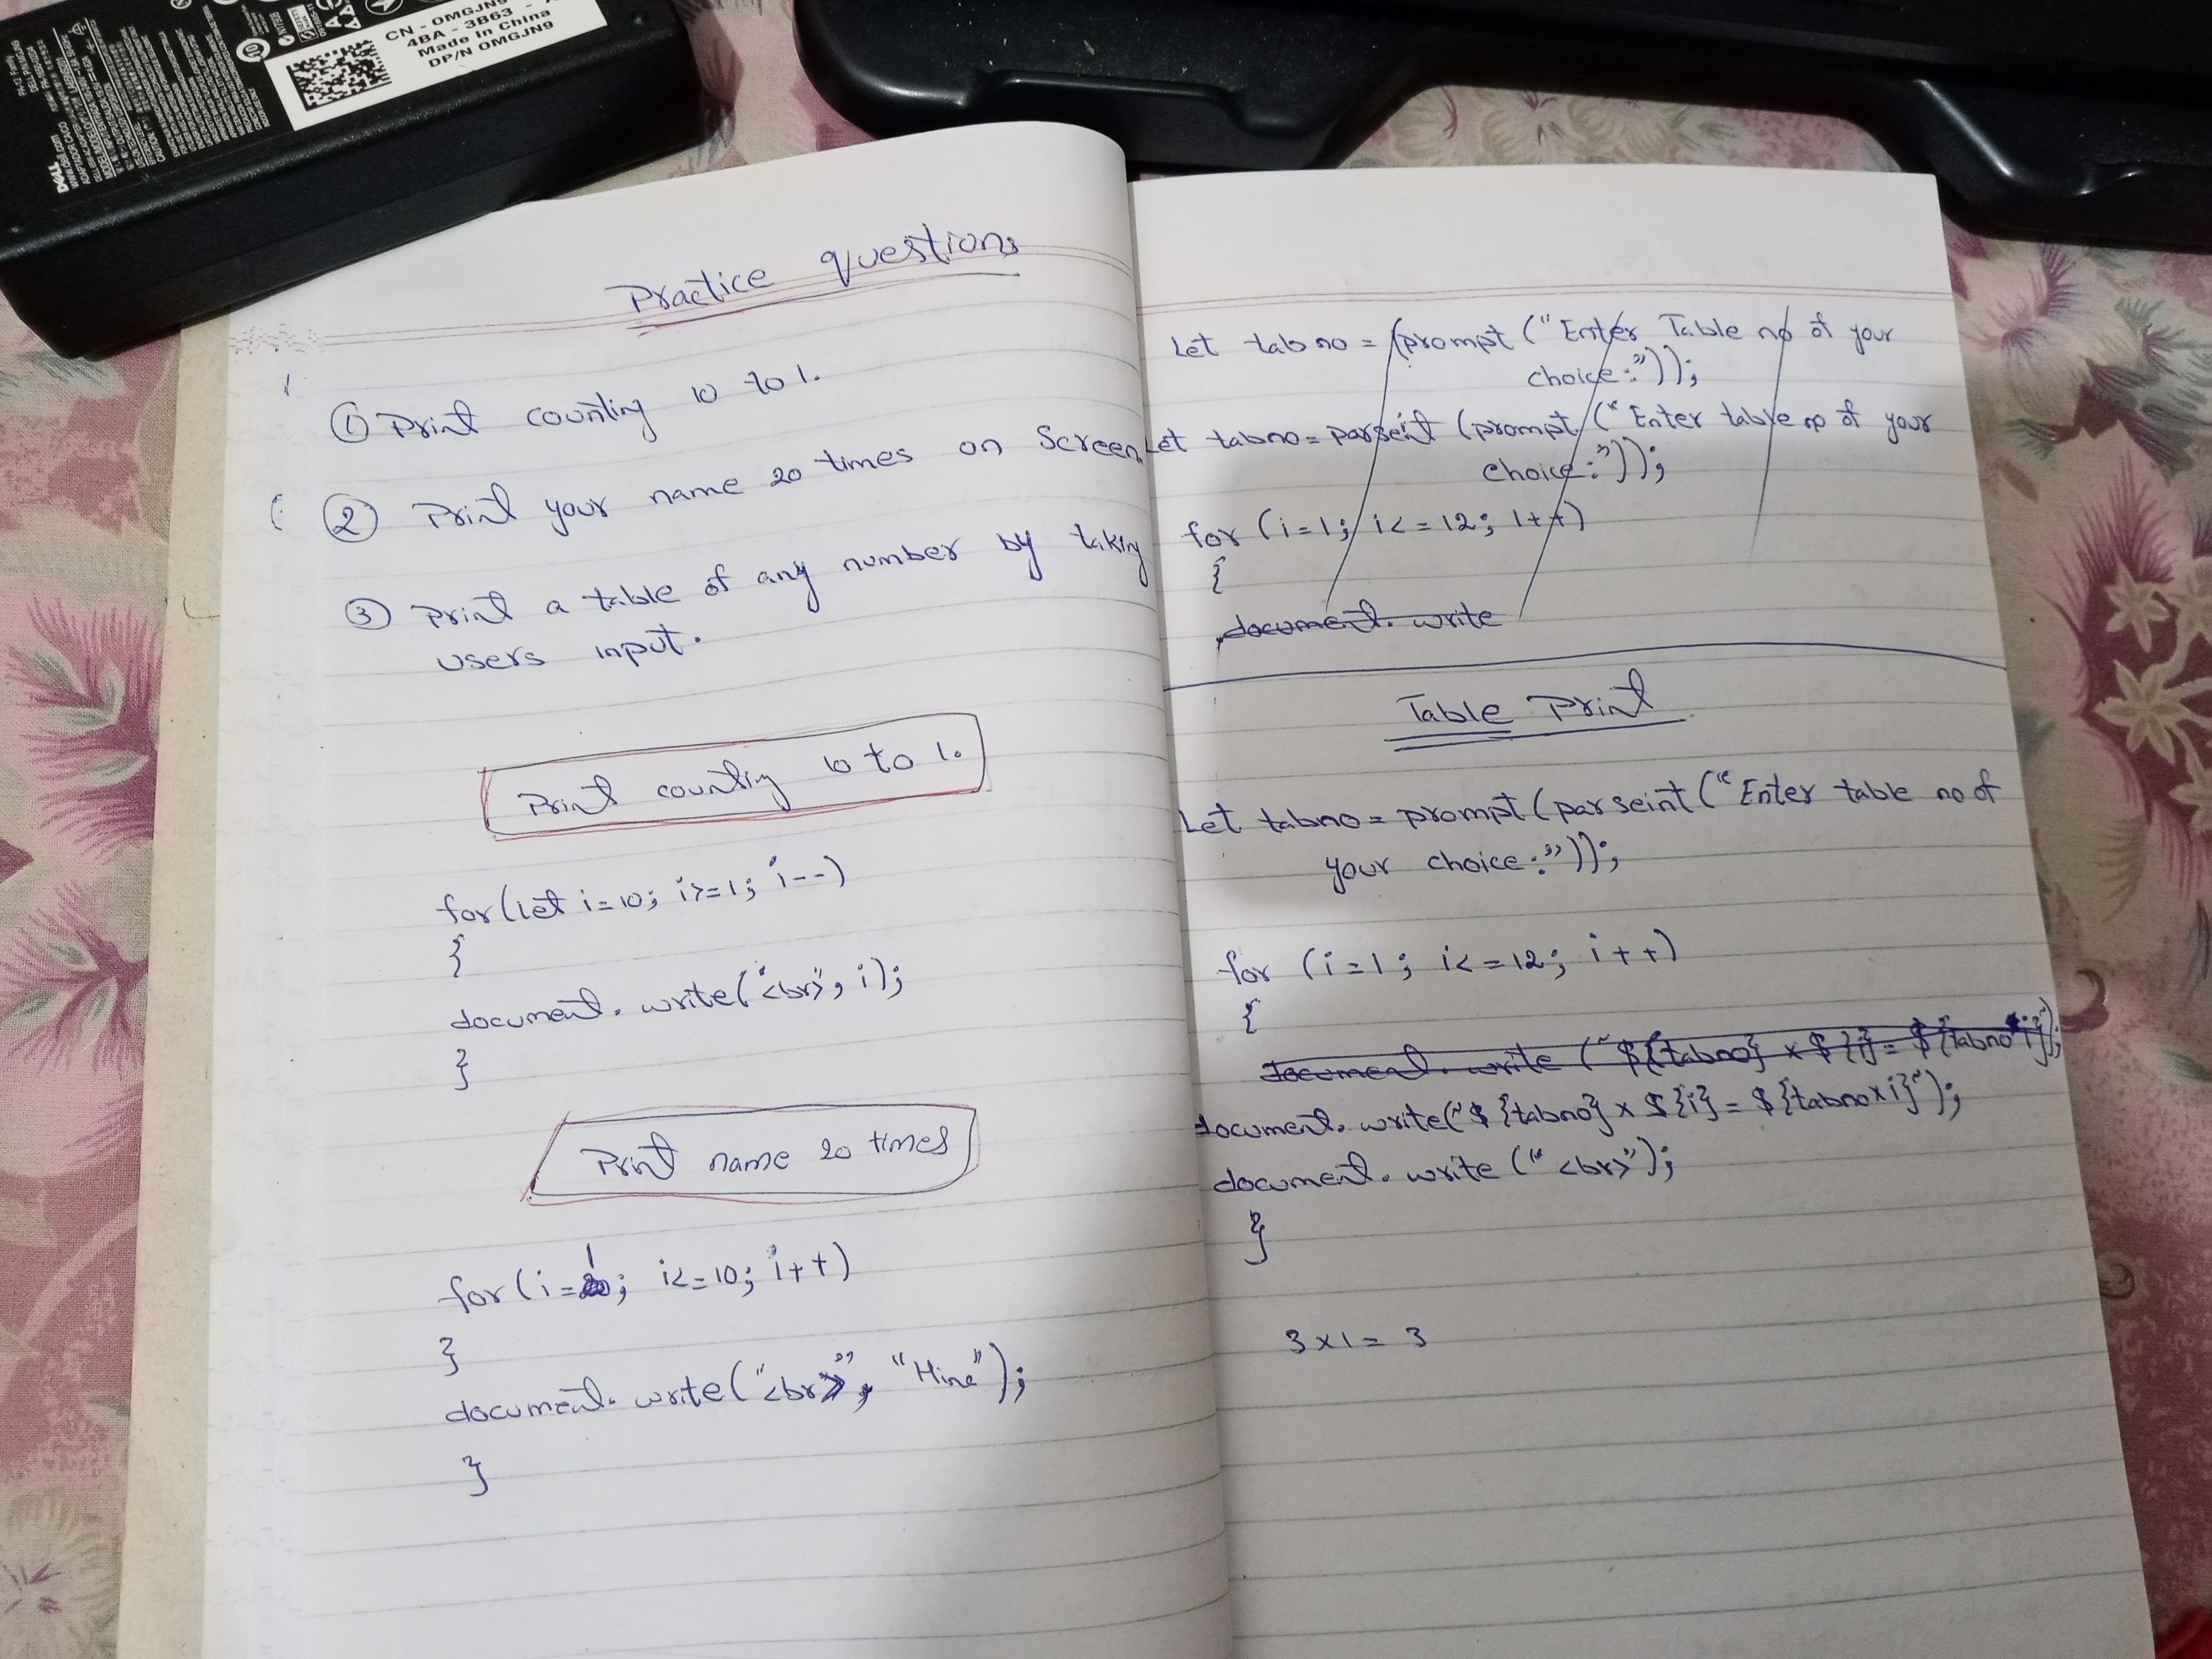 CN - 0MGJN9
4BA - 3B63 -
Made in China
DP/N 0MGJN9
DELL
Practice questions
① Print counting 10 to 1.
② Print your name 20 times on Screen
③ Print a table of any number by taking
users input.
Print counting 10 to 1.
for(let i=10; i>=1; i--)
{
document.write("<br>", i);
}
Print name 20 times
for(i=1; i<=10; i++)
}
document.write("<br>", "Hina");
}
Let tabno = (prompt ("Enter Table no of your
choice:"));
Let tabno= parseint (prompt ("Enter table no of your
choice:"));
for (i=1; i<=12; 1++)
{
document.write
Table Print
Let tabno= prompt(parseint("Enter table no of
your choice:"));
for (i=1; i<=12; i++)
{
document.write (`${tabno} x ${i} = ${tabno*i}`);
document.write(`${tabno} x ${i} = ${tabno*i}`);
document.write ("<br>");
}
3x1= 3